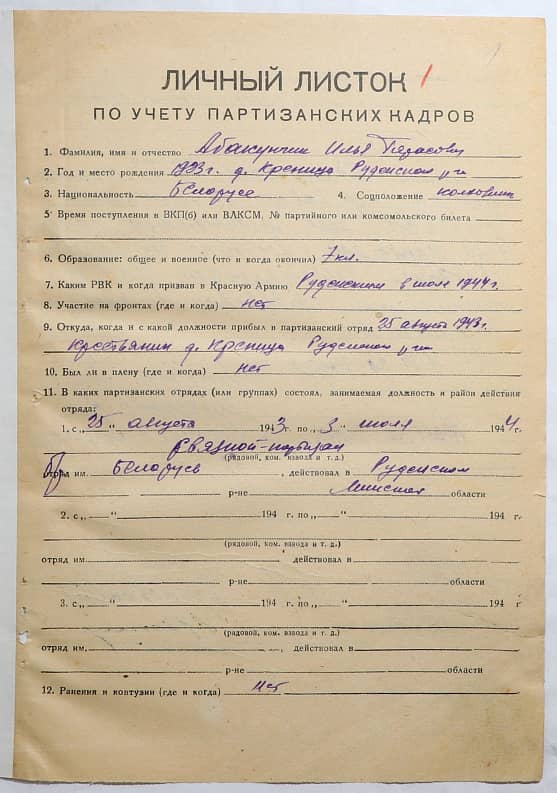 ЛИЧНЫЙ ЛИСТОК 1
ПО УЧЕТУ ПАРТИЗАНСКИХ КАДРОВ
1. Фамилия, имя и отчество Абакунчик Илья Тарасович
2. Год и место рождения 1923 г. д. Креница Руденского
3. Национальность Беларусс 4. Соцположение
5. Время поступления в ВКП(б) или ВЛКСМ, № партийного или комсомольского билета
6. Образование: общее и военное (что и когда окончил) 7 кл.
7. Каким РВК и когда призван в Красную Армию Руденским в июле 1944 г.
8. Участие на фронтах (где и когда) нет
9. Откуда, когда и с какой должности прибыл в партизанский отряд 25 августа 1943 г.
крестьянин д. Креница Руденского
10. Был ли в плену (где и когда) нет
11. В каких партизанских отрядах (или группах) состоял, занимаемая должность и район действия
отряда:
1. с „25" августа 1943 г. по „3" июля 1944 г.
связной-партизан
(рядовой, ком. взвода и т. д.)
отряд им. Беларусь, действовал в Руденском
р-не Минской области
2. с „ " 194 г. по „ " 194 г.
(рядовой, ком. взвода и т. д.)
отряд им. действовал в
р-не области
3. с „ " 194 г. по „ " 194 г.
(рядовой, ком. взвода и т. д.)
отряд им. , действовал в
р-не области
12. Ранения и контузии (где и когда) нет